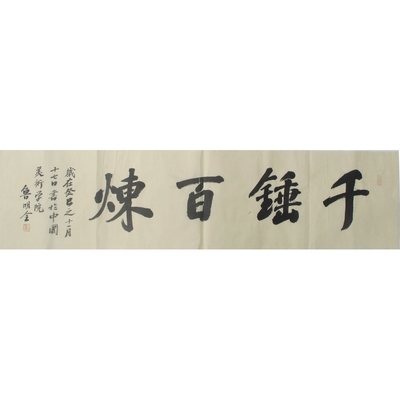 千锤百煉
歲在癸巳之十一月
十七日書於中國
美術學院
魯明全